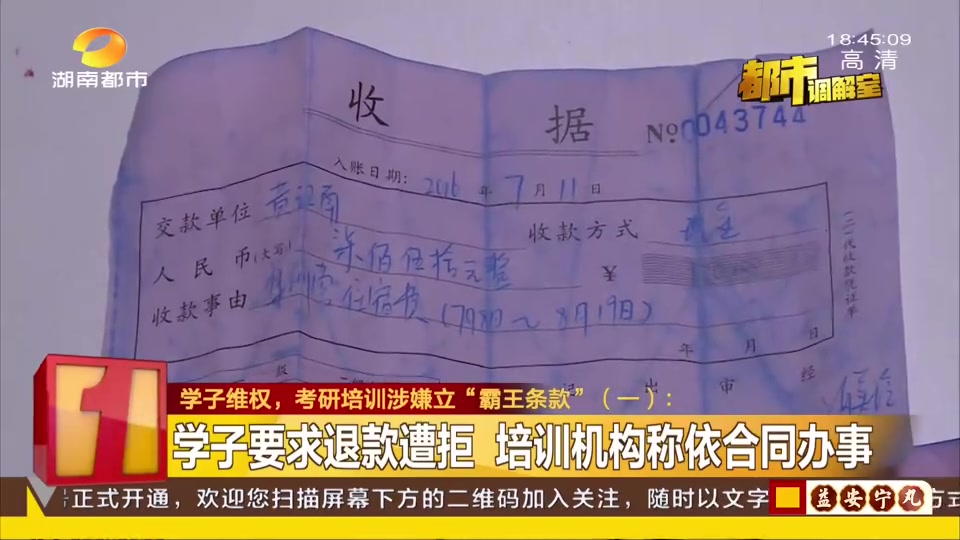 湖南都市
18:45:09
高清
都市调解室
收 据 № 0043744
入账日期: 2016 年 7 月 11 日
交款单位 收款方式
人民币(大写) 柒佰伍拾元整 ¥
收款事由 集训营住宿费(7月8日~8月19日)
年 月 日
出 审 经
学子维权，考研培训涉嫌立“霸王条款”（一）：
1
学子要求退款遭拒 培训机构称依合同办事
正式开通，欢迎您扫描屏幕下方的二维码加入关注，随时以文字
益安宁丸
方式